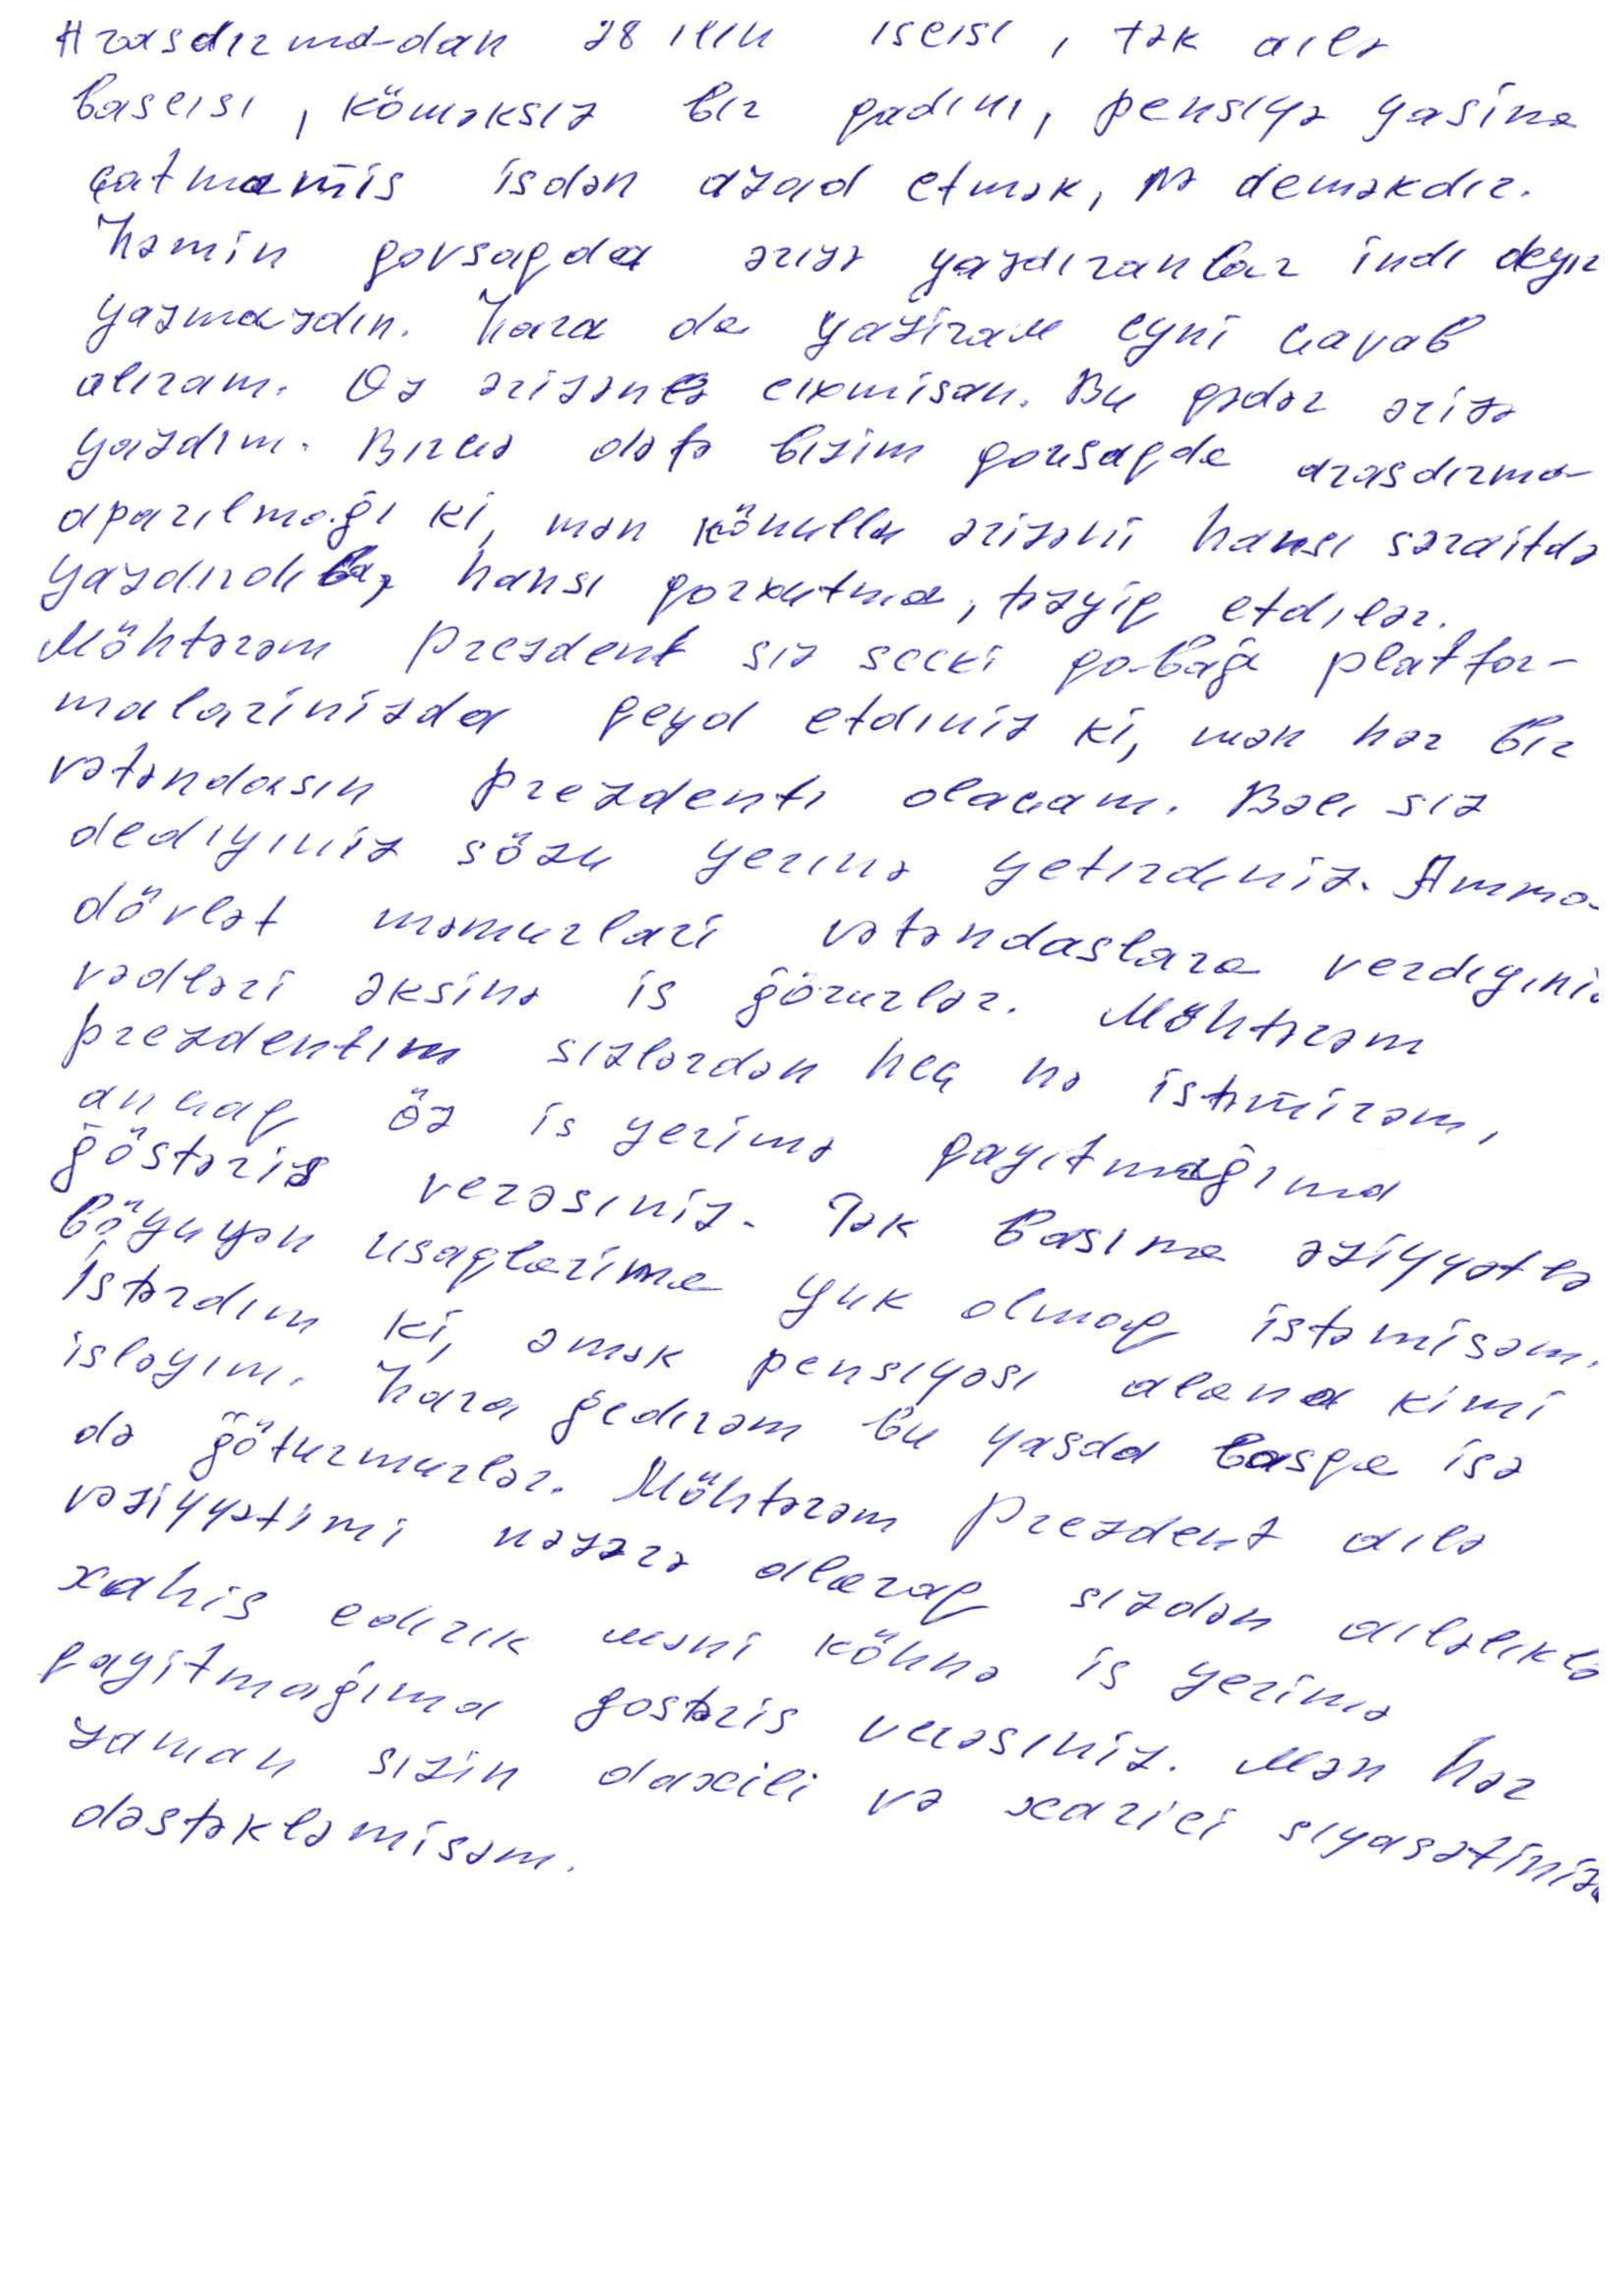 Arasdırma-dan 28 ilin iscisi, tək ailə
bascisi, köməksiz bir qadını, pensiya yasina
çatmamis isdən azad etmək, nə deməkdir.
Həmin qovsaqda ərizə yazdıranlar indi deyir
yazmazdın. Hara da yaziram eyni cavab
alıram. Oz ərizənlə cixmisan. Bu qədər ərizə
yazdım. Bircə dəfə bizim qovsaqda arasdırma
aparılmağı ki, mən könullu ərizəni hansı səraitdə
yazdırdılar, hansı qorxutma, təzyiq etdilər.
Möhtərəm Prezdent siz secki qabağı platfor-
malarinizda qeyd etdiniz ki, mən hər bir
vətəndasın prezdenti olacam. Bəli siz
dediyiniz sözu yerinə yetirdiniz. Amma
dövlət məmurlari vətəndaslara verdiyiniz
vədləri əksinə is ğörurlər. Möhtərəm
prezdentim sizlərdən heç nə istəmirəm,
ancaq öz is yerimə qayıtmağıma
ğöstəris verəsiniz. Tək basıma əziyyətlə
böyuyən usaqlarima yuk olmaq istəmisəm.
istərdim ki, əmək pensiyası alana kimi
isləyim. Hara ğedirəm bu yasda basqa isə
də ğöturmurlər. Möhtərəm Prezdent ailə
vəziyyətimi nəzərə alaraq sizdən ailəliklə
xahis edirik məni köhnə is yerimə
qayitmağıma gostəris verəsiniz. Mən hər
zaman sizin daxili və xarici siyasətiniz
dəstəkləmisəm.